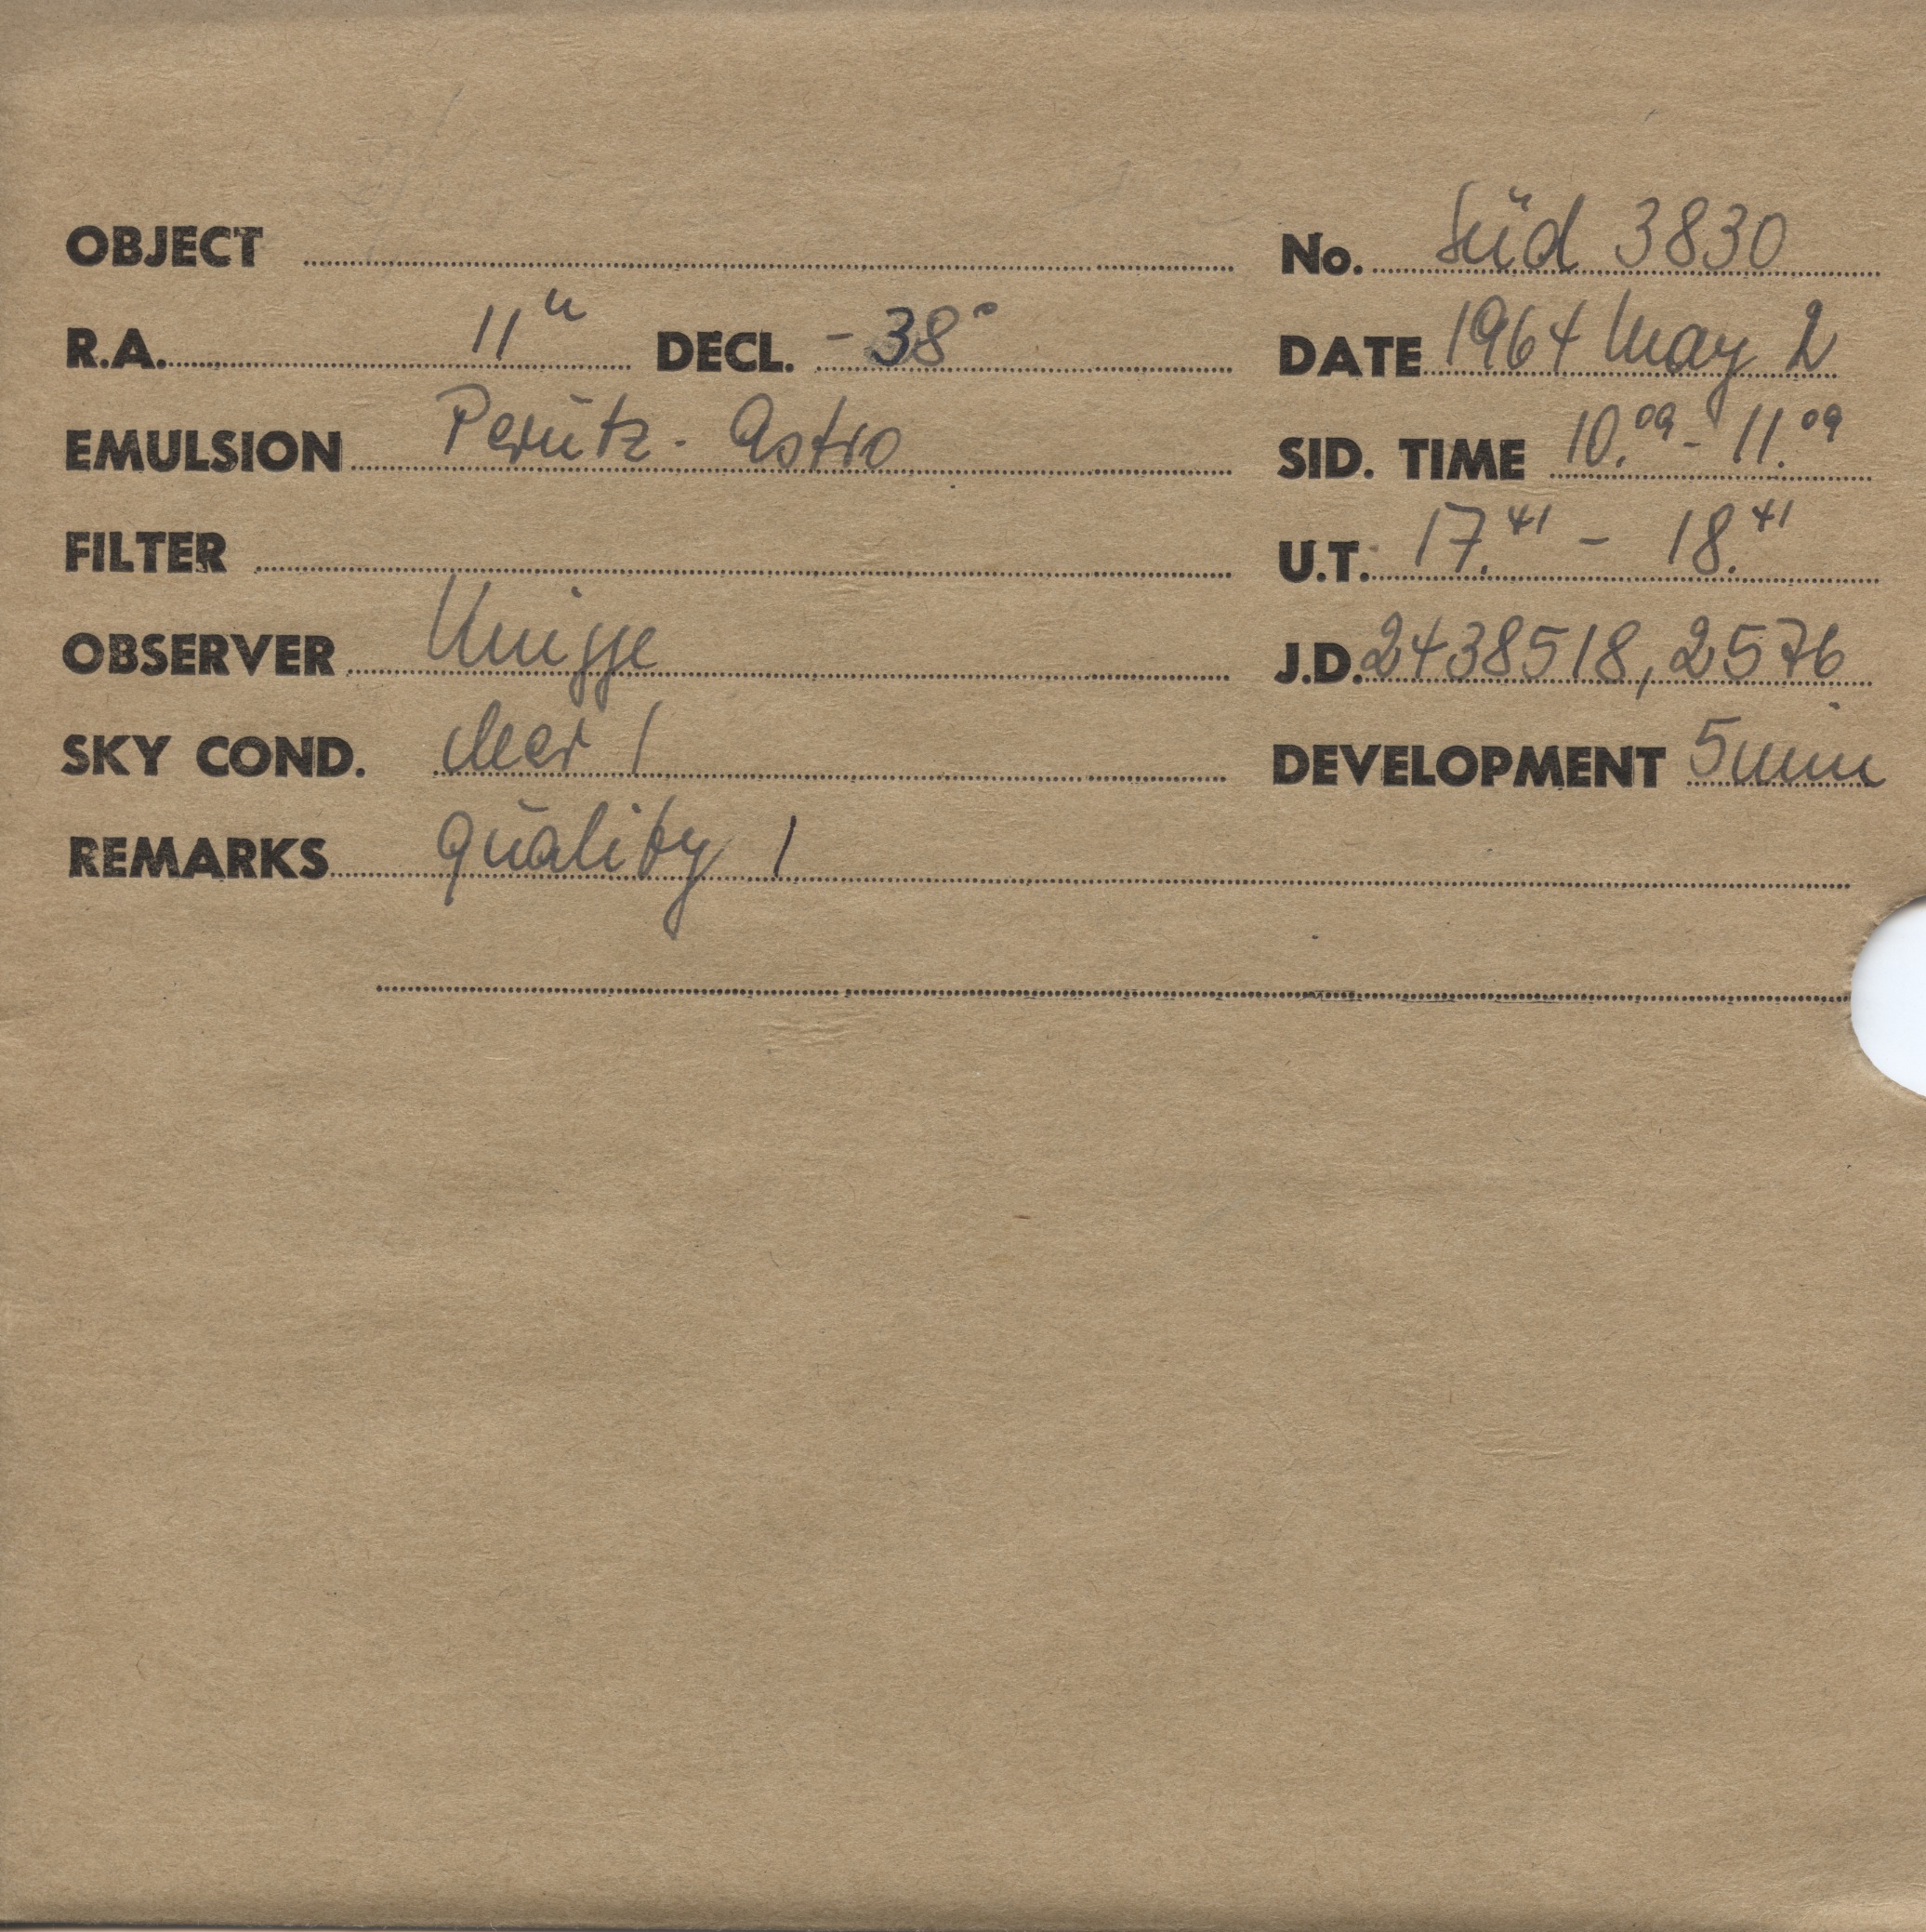 OBJECT No. Süd 3830
R.A. 11h DECL. -38°
DATE 1964 May 2
EMULSION Perutz-Astro
SID. TIME 10.09 - 11.09
FILTER U.T. 17.41 - 18.41
OBSERVER Knigge
J.D. 2438518,2576
SKY COND. clear 1 DEVELOPMENT 5 min
REMARKS quality 1